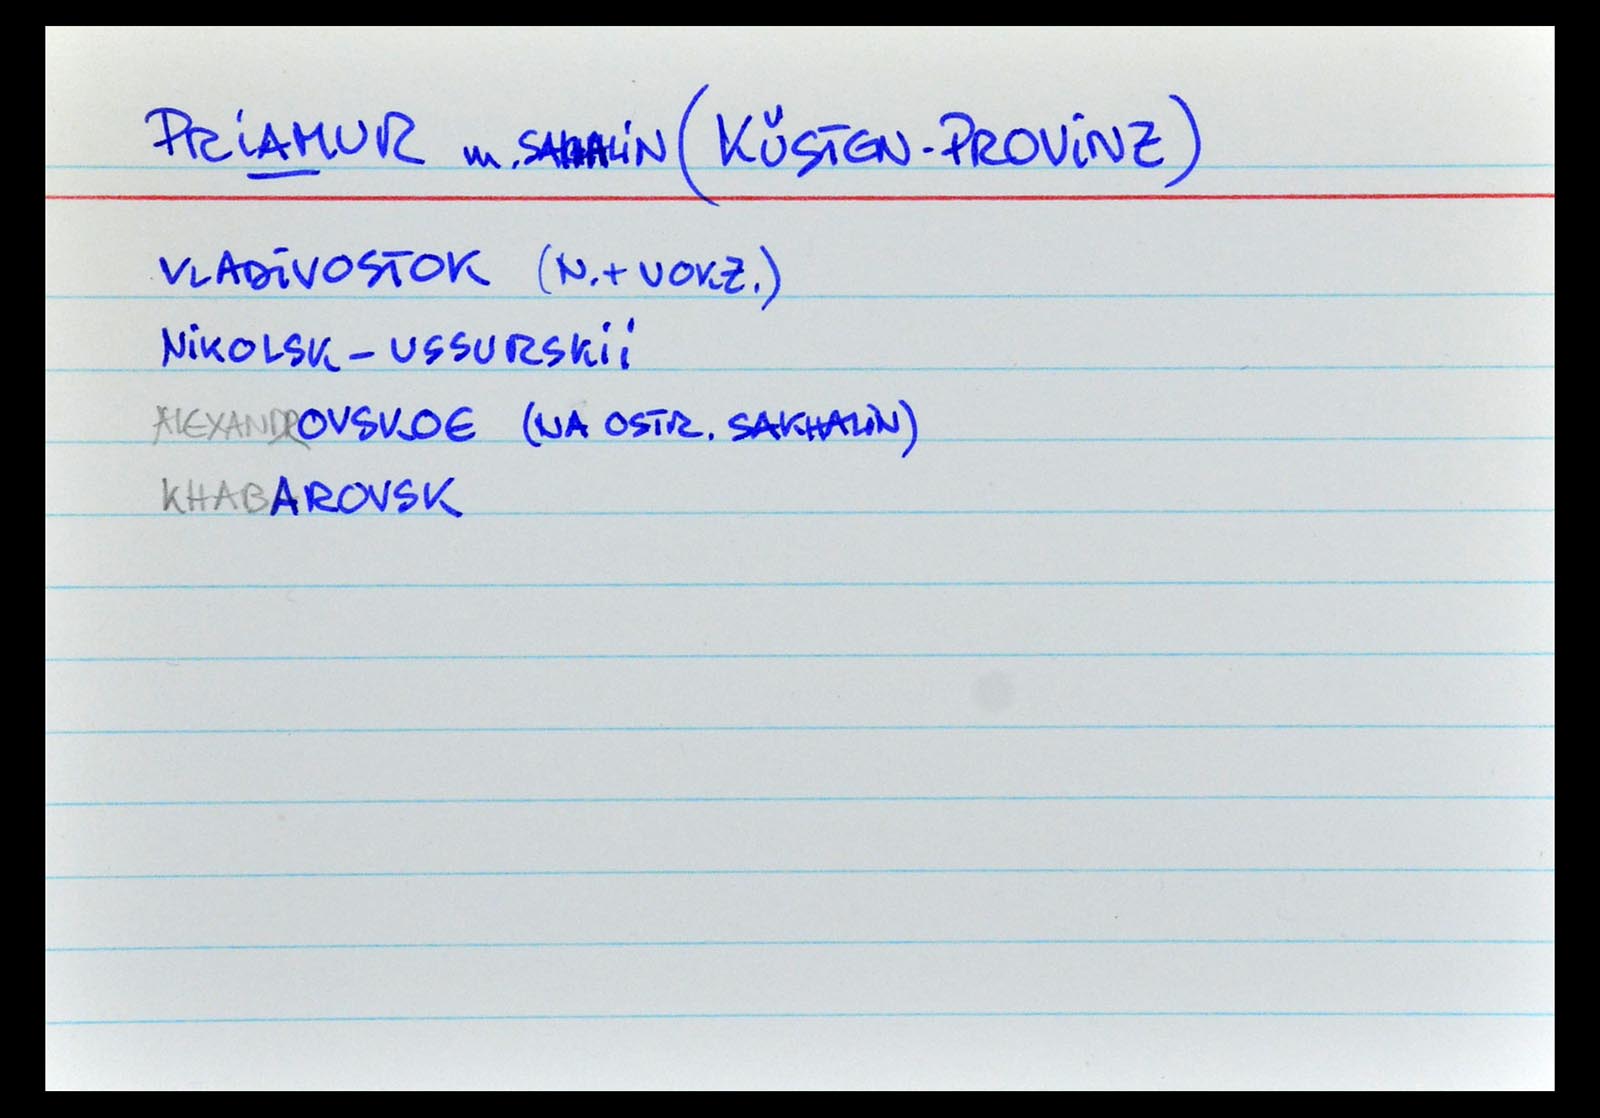 PRIAMUR m. SAKHALIN (KÜSTEN-PROVINZ)
VLADIVOSTOK (N.+VOKZ.)
NIKOLSK-USSURSKII
ALEXANDROVSKOE (NA OSTR. SAKHALIN)
KHABAROVSK